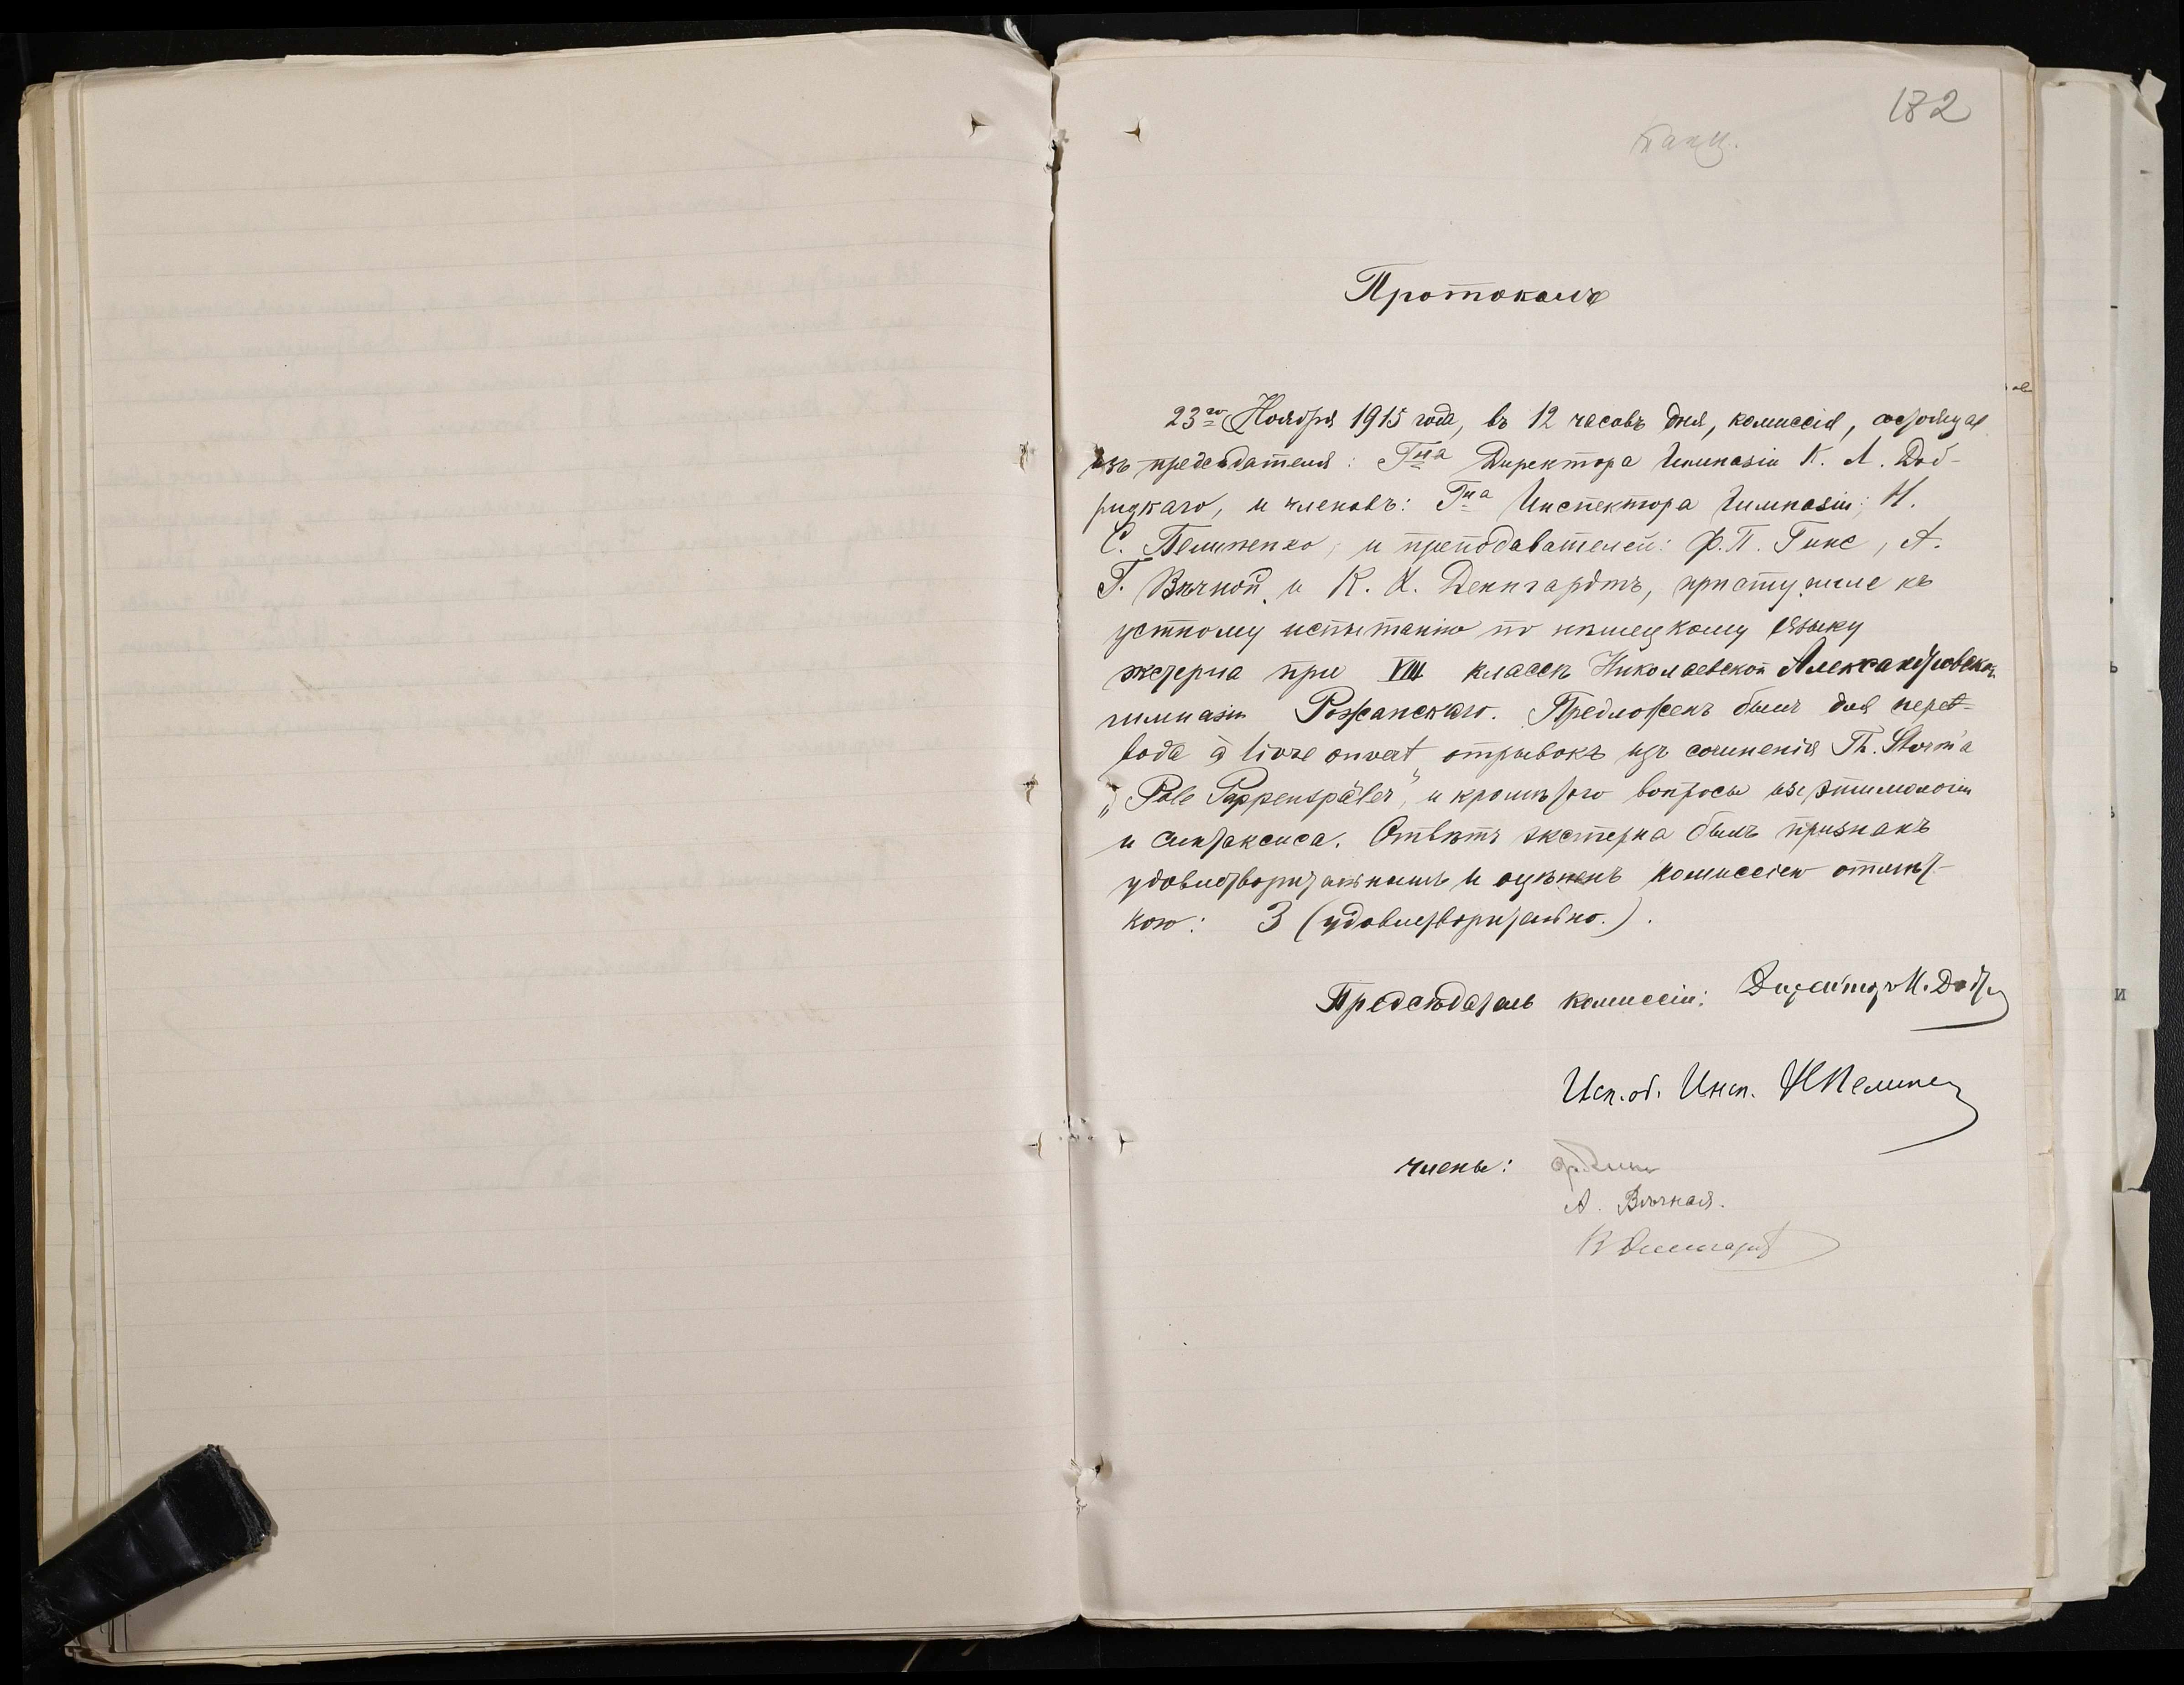 182
Протоколъ
23го Ноября 1915 года, въ 12 часовъ дня, комиссія, состоящая
изъ предсѣдателя: Гна Директора Гимназіи К. Л. Доб-
ридкаго, и членовъ: Гна Инспектора Гимназіи, Н.
С. Пелипенко, и преподавателей: Ф. П. Гикс, А.
Г. Вѣчной, и К. К. Денгардтъ, приступиле къ
устному испытанію по нѣмецкому языку
экстерна при VIII классѣ Николаевской Александровской
гимназіи Рожанскаго. Предложенъ былъ для пере-
вода à livre ouvert отрывокъ изъ сочиненія Th. Storm'a
„Pole Poppenspäler", и кромѣ того вопросы изъ этимологіи
и синтаксиса. Отвѣтъ экстерна былъ признанъ
удовлетворительнымъ и оцѣненъ комиссіею отмѣт-
кою: 3 (удовлетворительно.).
Предсѣдатель комиссіи: Директоръ К. Добр
Исп. об. Инсп. Н Пелипен
члены:
А. Вѣчная.